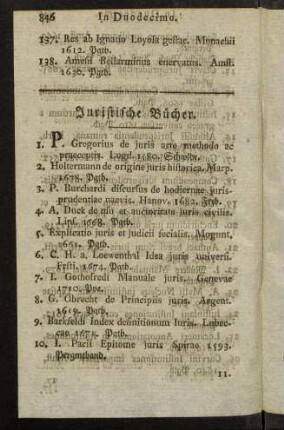 846 In Duodecimo.
137. Res ab Ignatio Loyola gestae. Monachii
1612. Pgtb.
138. Amesii Bellarminus enervatus. Amst.
1630. Pgtb.
Juristische Bücher.
1. P. Gregorius de juris arte methodo ac
praeceptis. Lugd. 1580.
2. Holtermann de origine juris historica. Marp.
1678. Pgtb.
3. P. Burchardi discursus de hodiernae juris-
prudentiae naevis. Hanov. 1682. Frzb.
4. A. Duck de usu et auctoritate juris civilis.
Lips. 1668. Pgtb.
5. Explicatio juris et judicii feciales. Mogunt.
1661. Pgtb.
6. C. H. a. Loewenthal Idea juris universi.
Frfti. 1674. Pgtb.
7. I. Gothofredi Manuale juris. Genevae
1710.
8. G. Obrecht de Principiis juris. Argent.
1619. Pgtb.
9. Barkfeldi Index definitionum Iuris. Lubec-
cae 1671. Pgtb.
10. I. Pacii Epitome juris Spirae 1593.
Pergmtband.
11.